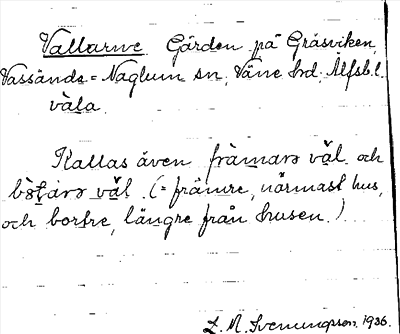 Vallarne Gärden på Gräsviken,
Vassända=Naglum sn; Väne hd; Älfsb.l.
väla
Kallas även främarə väl och
böṯarə väl. (= främre, närmast hus,
och bortre, längre från husen.)
L. M. Svenungsson. 1936.